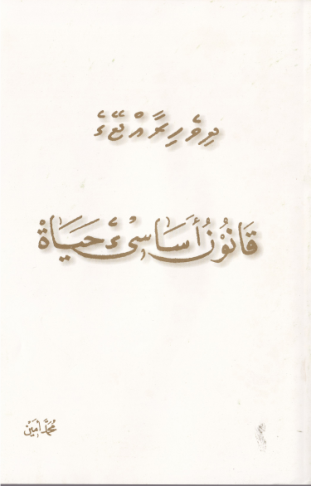 ދިވެހިރާއްޖޭގެ
قَانُوْنُ أَسَاسِىްގެ حَيَاةْ
مُحَمَّدْ أَمِيْن